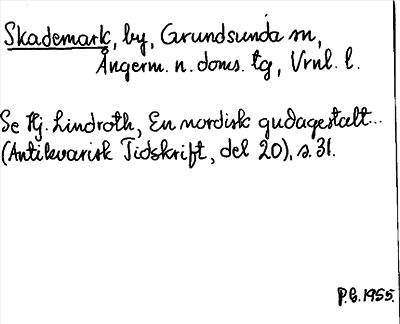 Skademark, by, Grundsunda sn,
Ångerm. n. doms. tg, Vrnl. l.
Se Hj. Lindroth, En nordisk gudagestalt...
(Antikvarisk Tidskrift, del 20), s. 31.
P.G. 1955.